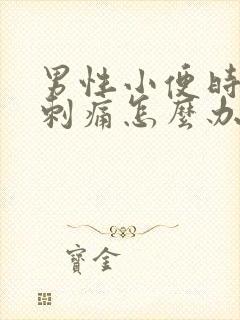 男性小便時
刺痛怎麼办
寶金